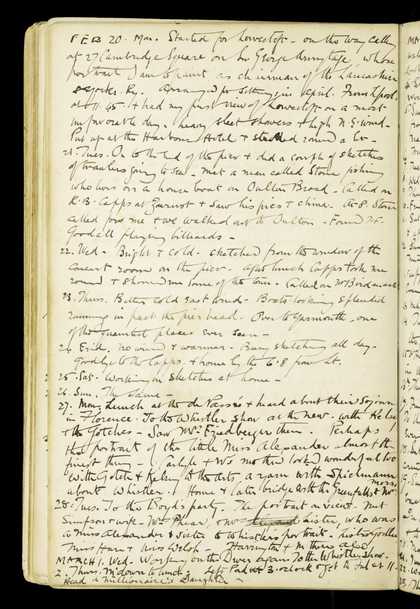 FEB 20. Mon. Started for Lowestoft - on the way calling
at 27 Cambridge Square on Sir George Armytage, whose
portrait I am to paint as chairman of the Lancashire
& Yorks. Ry. Arrang'd for sittings in April.
at 11.45. & had my first view of Lowestoft on a most
unfavorable day. heavy sleet showers & high N.E. wind -
Put up at the Harbour Hotel & round a bit -
21. Tues. On to the end of the pier & did a couple of sketches
of trawlers going to sea - met a man called Stone fishing
who lives on a house boat on Oulton Broad - Called on
R.B. Capps at & saw his pics & china. At 8 Stone
called for me & we walked out to Oulton - Found
Goodall playing billiards -
22. Wed - Bright & cold - sketched from the window of the
concert room on the pier. After lunch Capps took me
round & showed me some of the town. Called on Mr
23. Thurs. Bitter cold East wind - Boats looking splendid
running in past the pier head. Over to Yarmouth, one
of the quaintest places ever seen -
24 Frid. No wind & warmer - Busy sketching all day -
Goodbye to the Capps & home by the 6.8
25 Sat. Working on sketches at home -
26. Sun. The same -
27. Mon. Lunch at the de & heard about their sojourn
in Florence. To the Whistler show at the New - with Helen
& the Gotches - Saw Mrs there. Perhaps
the portrait of the little Miss Alexander almost the
finest thing - Carlyle & W's mother looked wonderful too
With Gotch & Kelsey to the Arts, a yarn with Spielmann
about Whistler. Home & later bridge with the Greenfells &
28. Tues. To the Boyd's party. The portrait a success. Met
Simpson's wife - Mrs and her sister, who was
a Miss Alexander & sister to Whistler's portrait -
Miss Hare & Miss Welsh - Harrington & M. there also
MARCH 1. Wed. Working on the Diver again. To the Whistler Show.
2. Thurs. M. down to lunch. Left Cad at 3 o'clock & got to at 11 -
Read a Millionaire's Daughter -